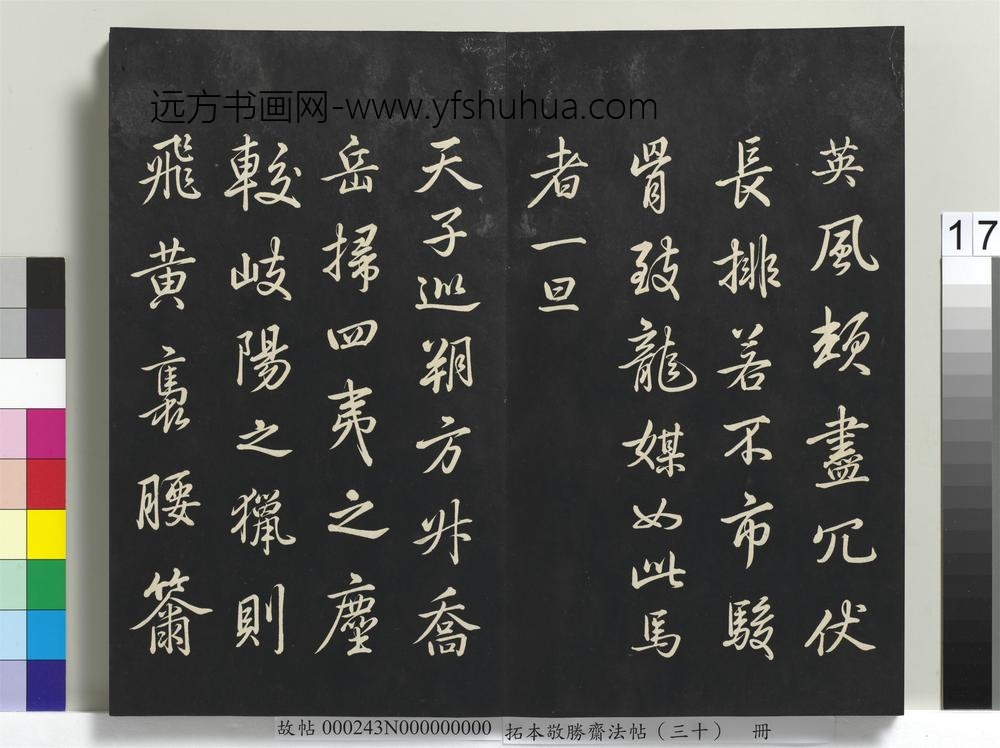 远方书画网-www.yfshuhua.com
英風頓盡冗伏
長排若不市駿
骨致龍媒如此馬
者一旦
天子巡朔方升喬
岳掃四夷之塵
較岐陽之獵則
飛黃褭腰簫
17
故帖 000243N000000000
拓本敬勝齋法帖（三十） 冊